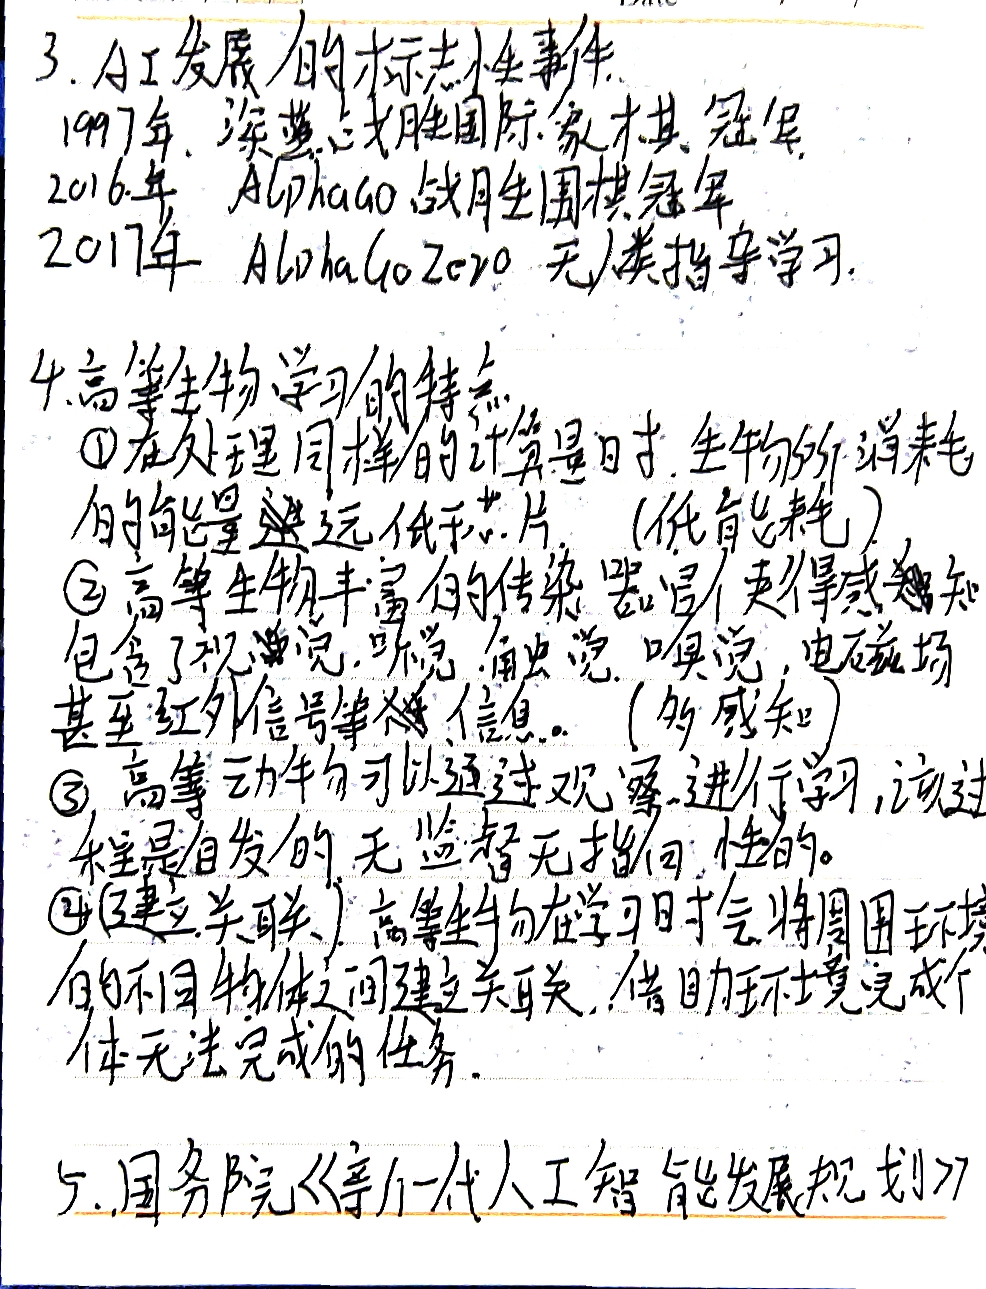 Date / /
3. AI发展的标志性事件.
1997年. 深蓝战胜国际象棋冠军.
2016年 AlphaGo 战胜围棋冠军
2017年 AlphaGo Zero 无人类指导学习.
4.高等生物学习的特点
①在处理同样的计算量时. 生物所消耗
的能量远低于芯片. (低能耗).
② 高等生物丰富的传染器官使得感知
包含了视觉. 听觉. 触觉. 嗅觉, 电磁场
甚至红外信号等信息。 (多感知)
③ 高等动物可以通过观察进行学习,该过
程是自发的 无监督无指向性的。
④(建立关联) 高等生物在学习时会将周围环境
的不同物体之间建立关联. 借助环境完成个
体无法完成的任务.
5. 国务院《新一代人工智能发展规划》